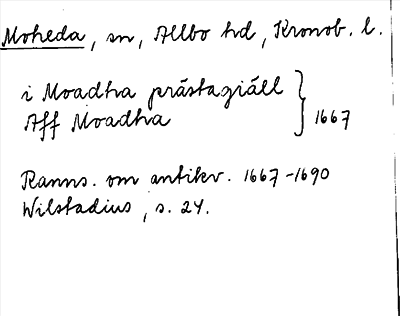 Moheda, sn, Allbo hd, Kronob. l.
i Moadha prästagiäll
Aff Moadha } 1667
Ranns. om antikv. 1667-1690
Wilstadius, s. 24.